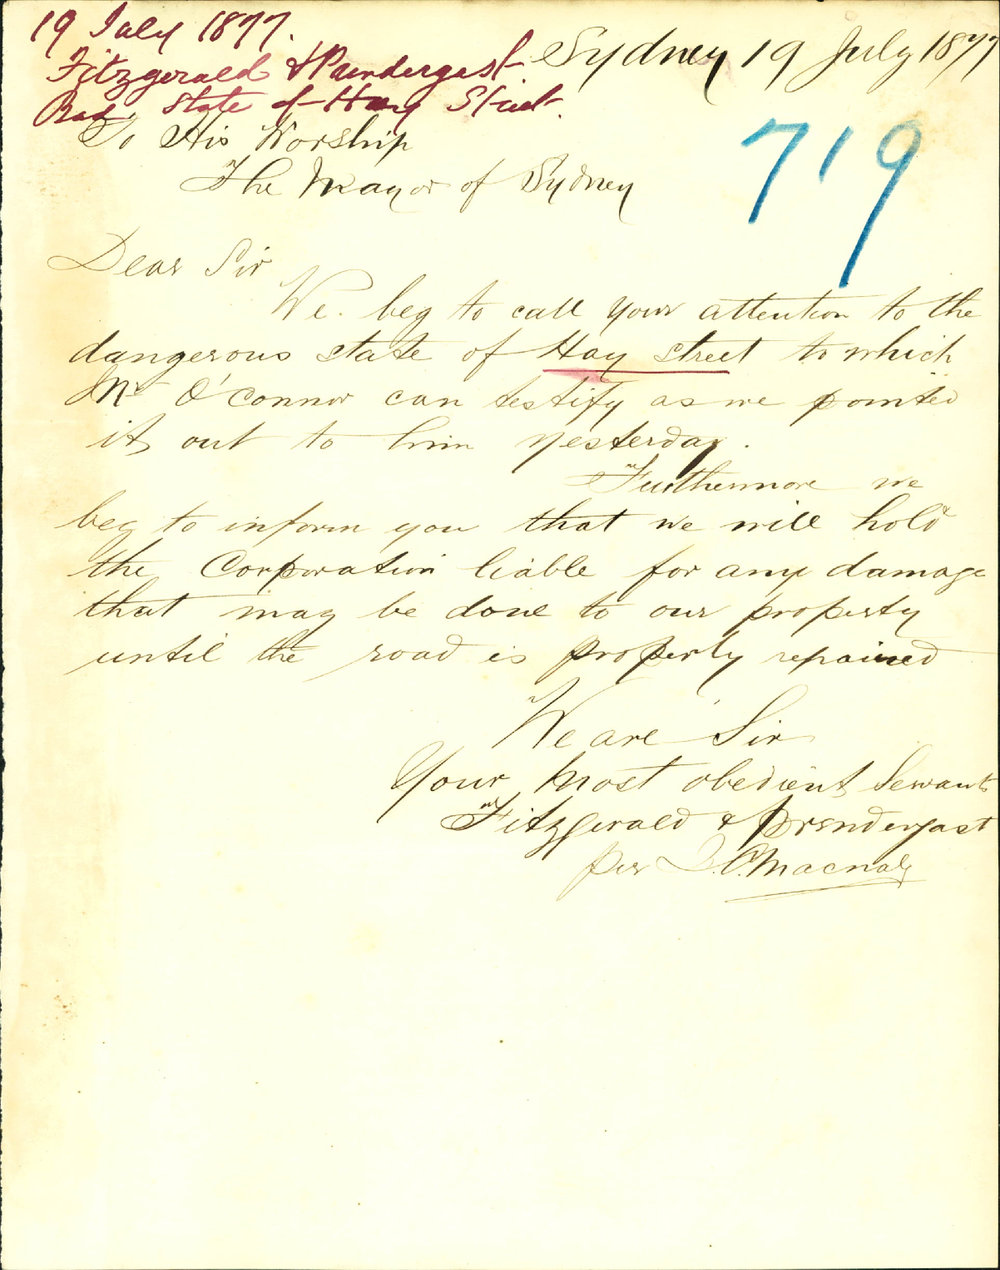 19 July 1877.
Fitzgerald & Prendergast
Bad State of Hay Street.
Sydney 19 July 1877
719
To His Worship
The Mayor of Sydney
Dear Sir
We beg to call your attention to the
dangerous state of Hay street to which
Mr O'Connor can testify as we pointed
it out to him yesterday.
Furthermore we
beg to inform you that we will hold
the Corporation liable for any damage
that may be done to our property
until the road is properly repaired
We are Sir
Your most obedient Servants
Fitzgerald & Prendergast
per